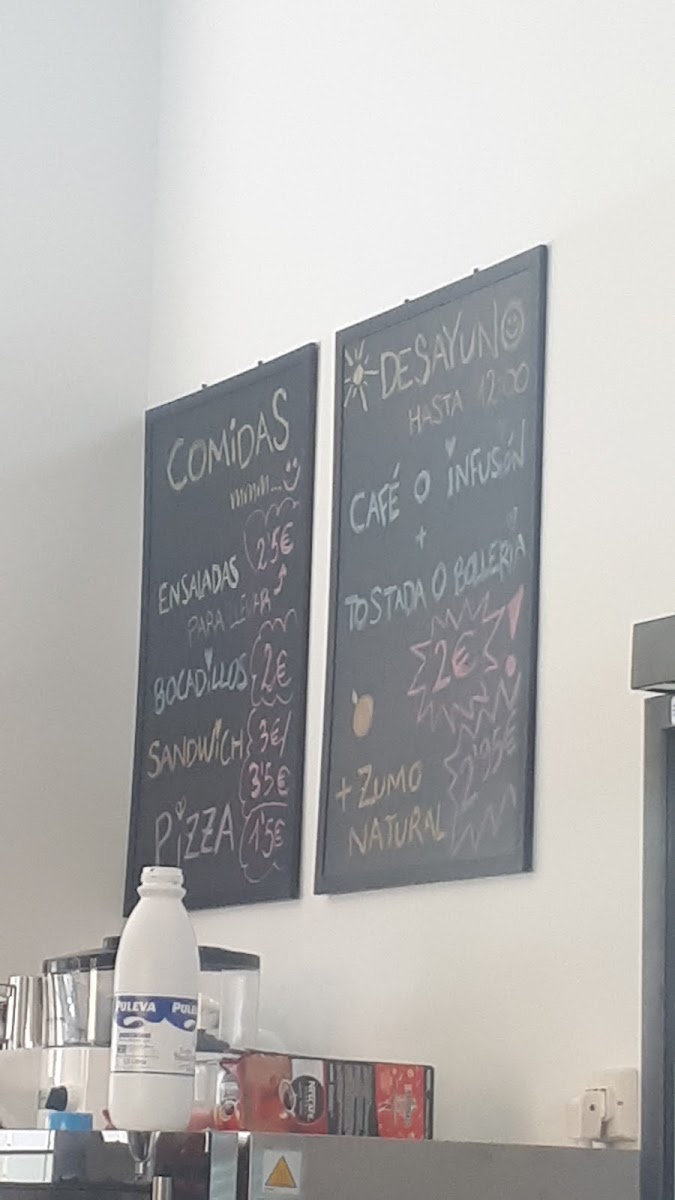 COMiDAS
mmm...
ENSALADAS 2'5€
PARA LLEVAR
BOCADiLLOS 2€
SANDWiCH 3€/
3'5€
PiZZA 1'5€
DESAYUNO
HASTA 12:00
CAFÉ O iNFUSiÓN
+
TOSTADA O BOLLERiA
2€!
+ ZUMO
NATURAL 2'95€
PULEVA PULE
NESCAFÉ